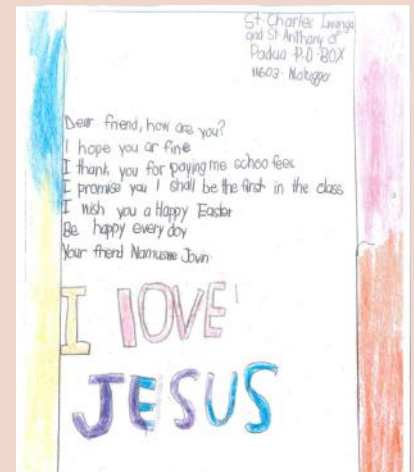 St Charles Lwanga
and St Anthony of
Padua P.O-BOX
11603. Nakuggo
Dear friend, how are you?
I hope you ar fine
I thank you for paying me schoo fees
I promise you I shall be the first in the class
I wish you a Happy Easter
Be happy every day
Your friend Jovin
I lOVE
JESUS